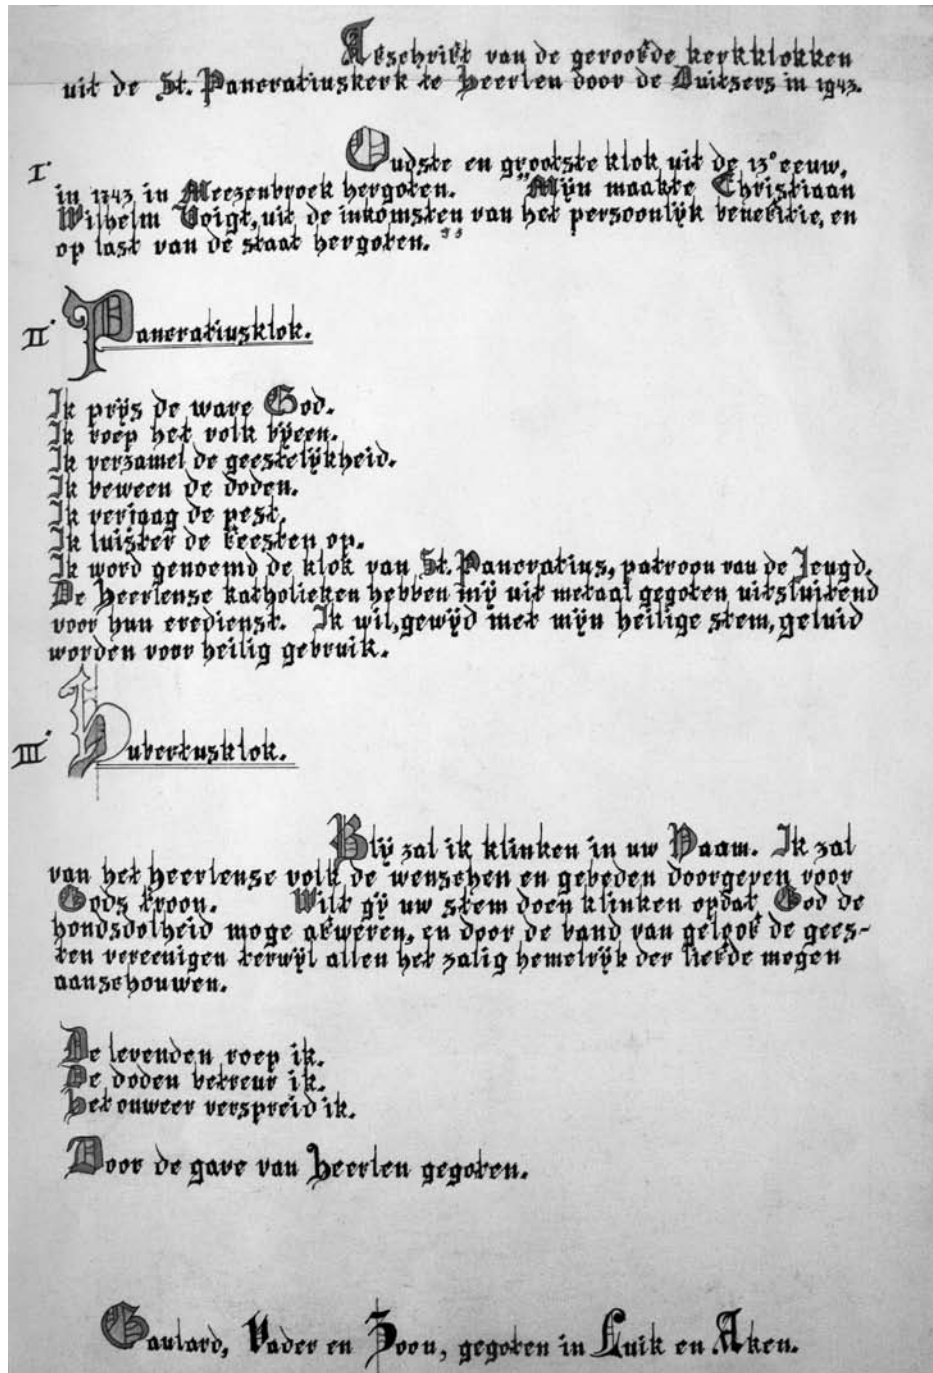 Afschrift van de geroofde kerkklokken
uit de St. Pancratiuskerk te Heerlen door de Duitsers in 1943.
I. Oudste en grootste klok uit de 13e eeuw,
in 1743 in Meezenbroek hergoten. "Mijn maakte Christiaan
Wilhelm Voigt, uit de inkomsten van het persoonlijk benefitie, en
op last van de staat hergoten."
II. Pancratiusklok.
Ik prijs de ware God.
Ik roep het volk bijeen.
Ik verzamel de geestelijkheid.
Ik beween de doden.
Ik verjaag de pest.
Ik luister de feesten op.
Ik word genoemd de klok van St. Pancratius, patroon van de Jeugd.
De Heerlense katholieken hebben mij uit metaal gegoten uitsluitend
voor hun eredienst. Ik wil, gewijd met mijn heilige stem, geluid
worden voor heilig gebruik.
III. Hubertusklok.
Blij zal ik klinken in uw Naam. Ik zal
van het heerlense volk de wenschen en gebeden doorgeven voor
Gods troon. Wilt gij uw stem doen klinken opdat God de
hondsdolheid moge afweren, en door de band van geloof de gees-
ten vereenigen terwijl allen het zalig hemelrijk der liefde mogen
aanschouwen.
De levenden roep ik.
De doden betreur ik.
Het onweer verspreid ik.
Door de gave van Heerlen gegoten.
Gaulard, Vader en Zoon, gegoten in Luik en Aken.